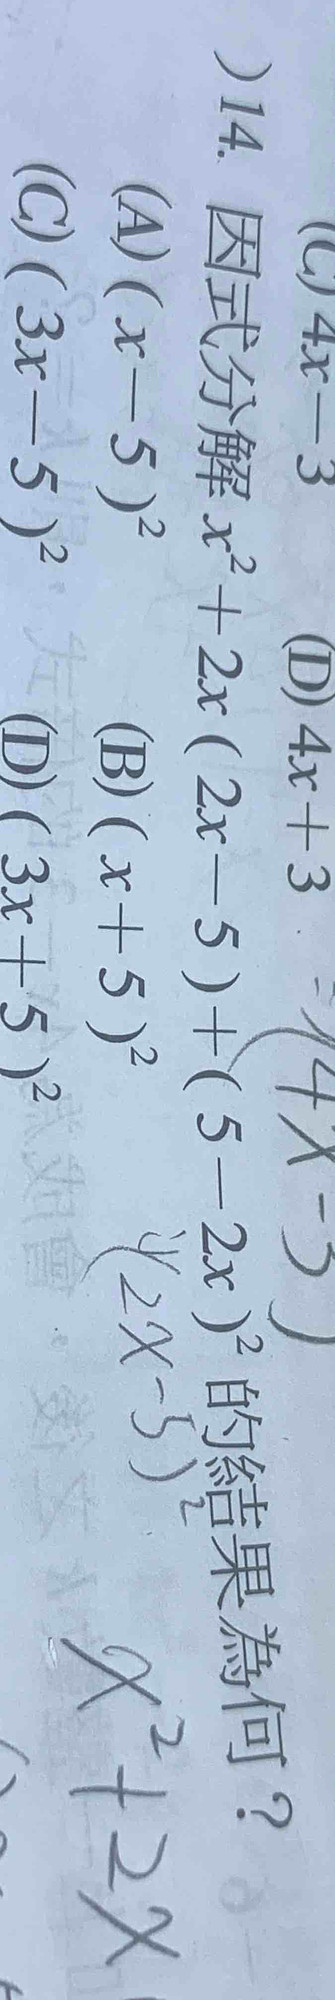 (C) 4x－3 (D) 4x＋3 =(4x-3)
)14. 因式分解 x²＋2x(2x－5)＋(5－2x)²的結果為何？
(A) (x－5)² (B) (x＋5)² (2x-5)²
(C) (3x－5)² (D) (3x＋5)² x²+2x